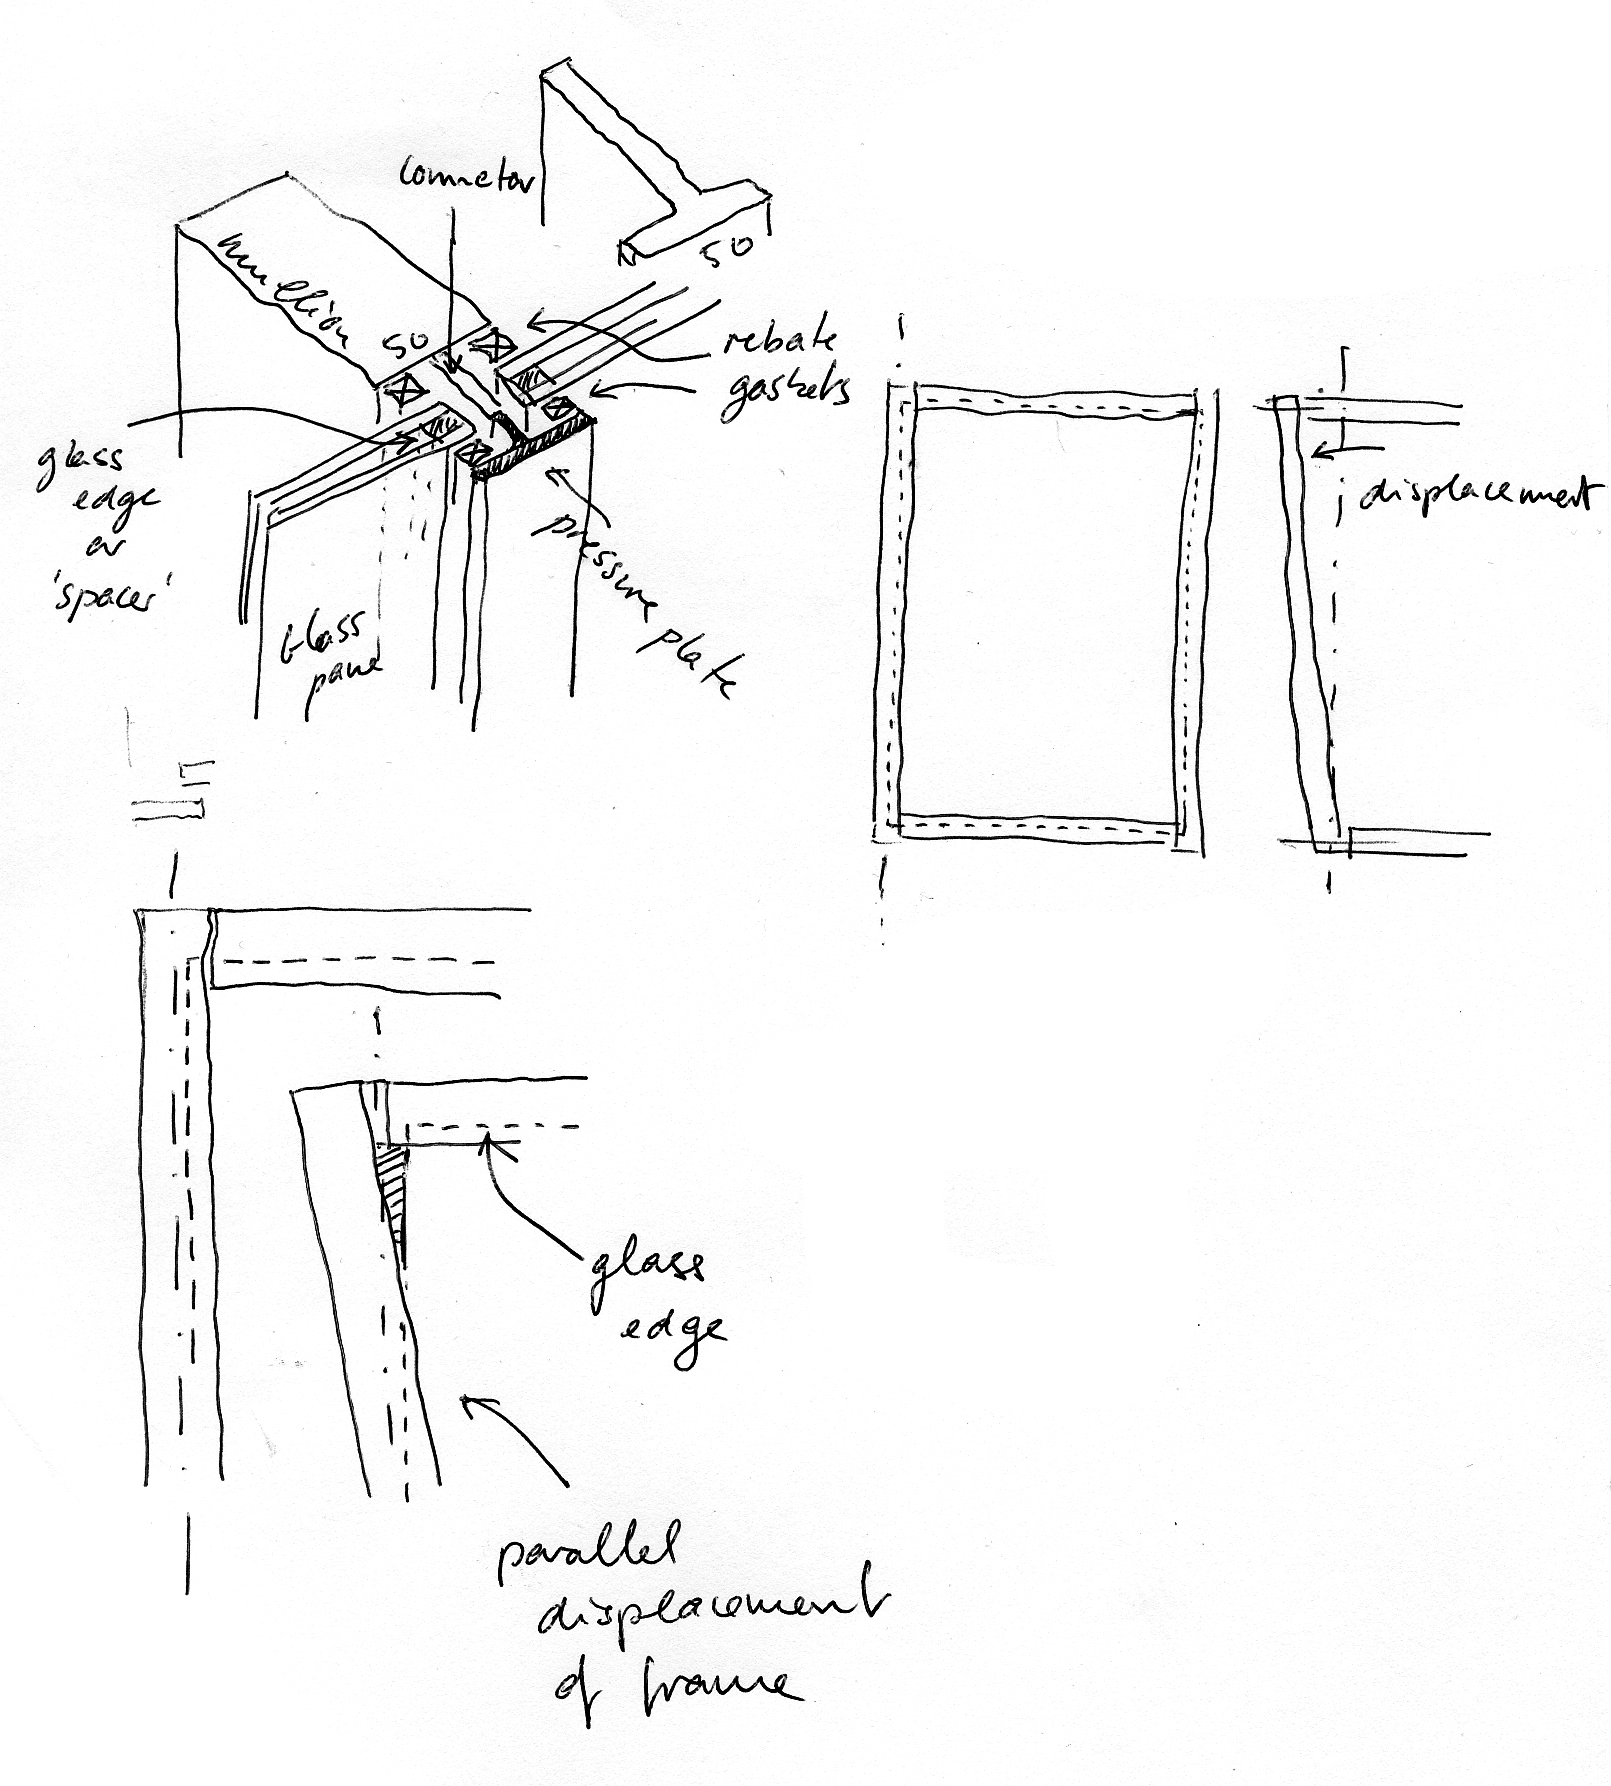 connector
mullion
50
50
rebate
gaskets
glass
edge
or
'spacer'
pressure plate
Glass
pane
displacement
glass
edge
parallel
displacement
of frame